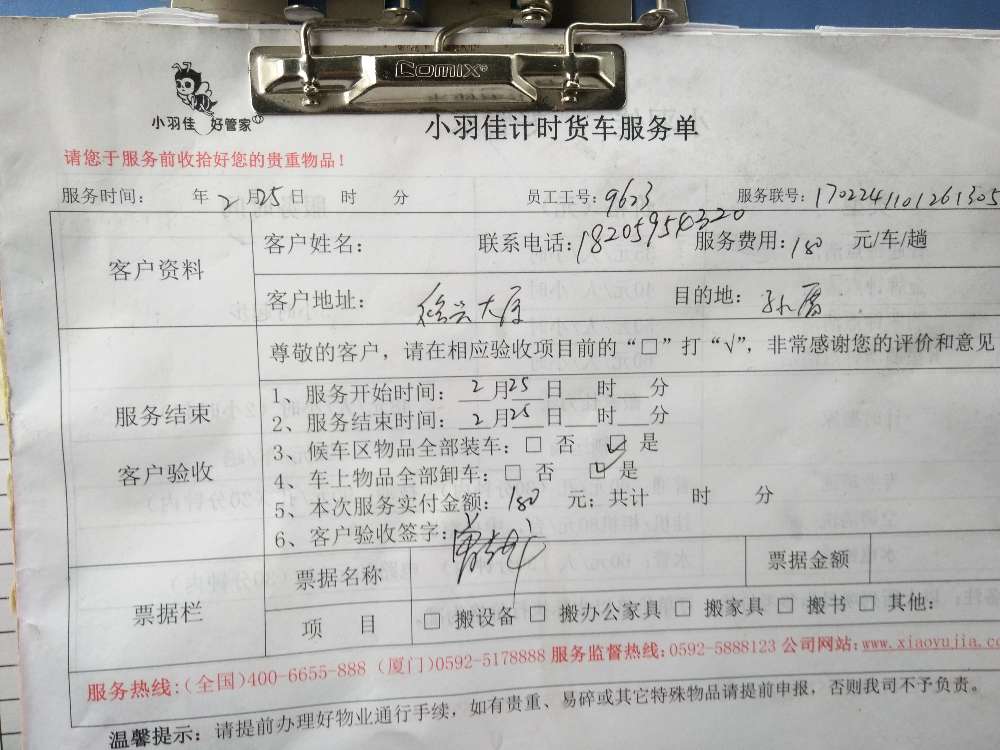 Comix®
小羽佳 好管家
小羽佳计时货车服务单
请您于服务前收拾好您的贵重物品！
服务时间： 年 2 月 25 日 时 分 员工工号：9623 服务联号：1702241101261305
客户资料
客户姓名： 联系电话：18205954320 服务费用：180 元/车/趟
客户地址： 大厦 目的地：
尊敬的客户，请在相应验收项目前的“□”打“√”，非常感谢您的评价和意见
服务结束
客户验收
1、服务开始时间： 2 月 25 日 时 分
2、服务结束时间： 2 月 25 日 时 分
3、候车区物品全部装车：□ 否 ☑ 是
4、车上物品全部卸车：□ 否 ☑ 是
5、本次服务实付金额：180 元；共计 时 分
6、客户验收签字：
票据栏
票据名称 票据金额
项 目 □ 搬设备 □ 搬办公家具 □ 搬家具 □ 搬书 □ 其他：
服务热线：（全国）400-6655-888（厦门）0592-5178888 服务监督热线：0592-5888123 公司网站：www.xiaoyujia.co
温馨提示：请提前办理好物业通行手续，如有贵重、易碎或其它特殊物品请提前申报，否则我司不予负责。